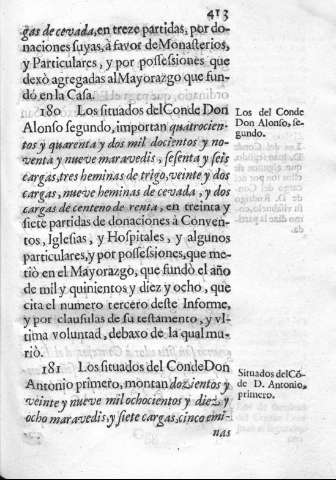 413
gas de cevada, en treze partidas, por do-
naciones suyas, à favor de Monasterios,
y Particulares, y por possessiones que
dexò agregadas al Mayorazgo que fun-
dó en la Casa.
180 Los situados del Conde Don
Alonso segundo, importan quatrocien-
tos y quarenta y dos mil docientos y no-
venta y nueve maravedis, sesenta y seis
cargas, tres heminas de trigo, veinte y dos
cargas, nueve heminas de cevada, y dos
cargas de centeno de renta, en treinta y
siete partidas de donaciones à Conven-
tos, Iglesias, y Hospitales, y algunos
particulares, y por possessiones, que me-
tiò en el Mayorazgo, que fundò el año
de mil y quinientos y diez y ocho, que
cita el numero tercero deste Informe,
y por clausulas de su testamento, y vl-
tima voluntad, debaxo de la qual mu-
riò.
Los del Conde
Don Alonso, se-
gundo.
181 Los situados del Conde Don
Antonio primero, montan dozientos y
veinte y nueve mil ochocientos y diez y
ocho maravedis, y siete cargas, cinco emi-
nas
Situados del Cõ-
de D. Antonio,
primero.